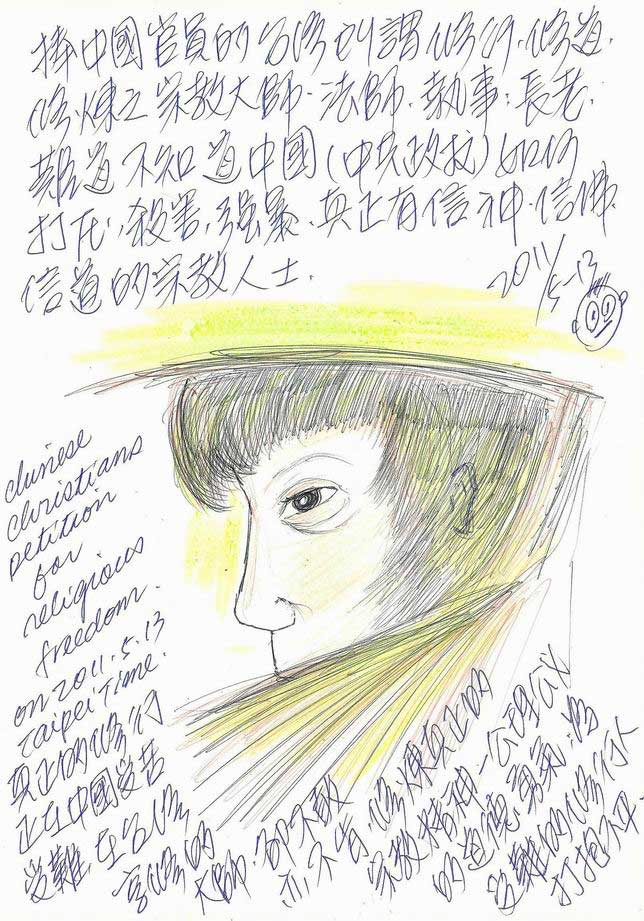 捧中國官員的台灣所謂修行.修道.
修.煉之宗教大師.法師.執事.長老.
難道不知道中國(中共政权)如何
打压.殺害.强暴.真正有信神.信佛.
信道的宗教人士.
2011/5-13
chinese
christians
petition
for
religious
freedom.
on 2011.5.13
Taipei Time.
真正的修行
正在中國受苦
受難 在台灣
大師.却不敢
亦不肯.修煉真正的
宗教精神-公理公义
的道德勇氣.為
受難的修行人
打抱不平.